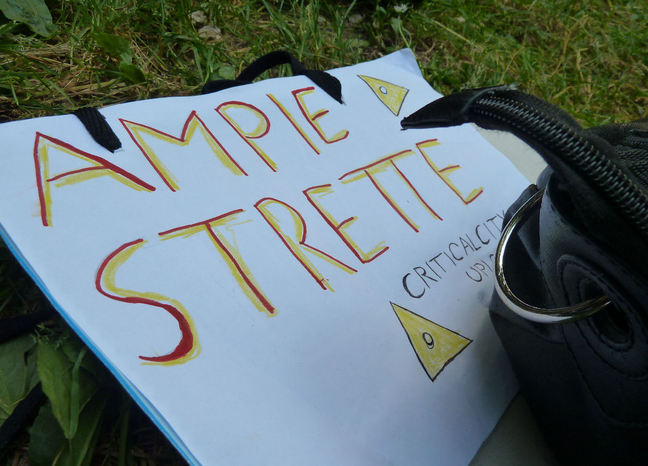 AMPIE
STRETTE
CRITICALCITY